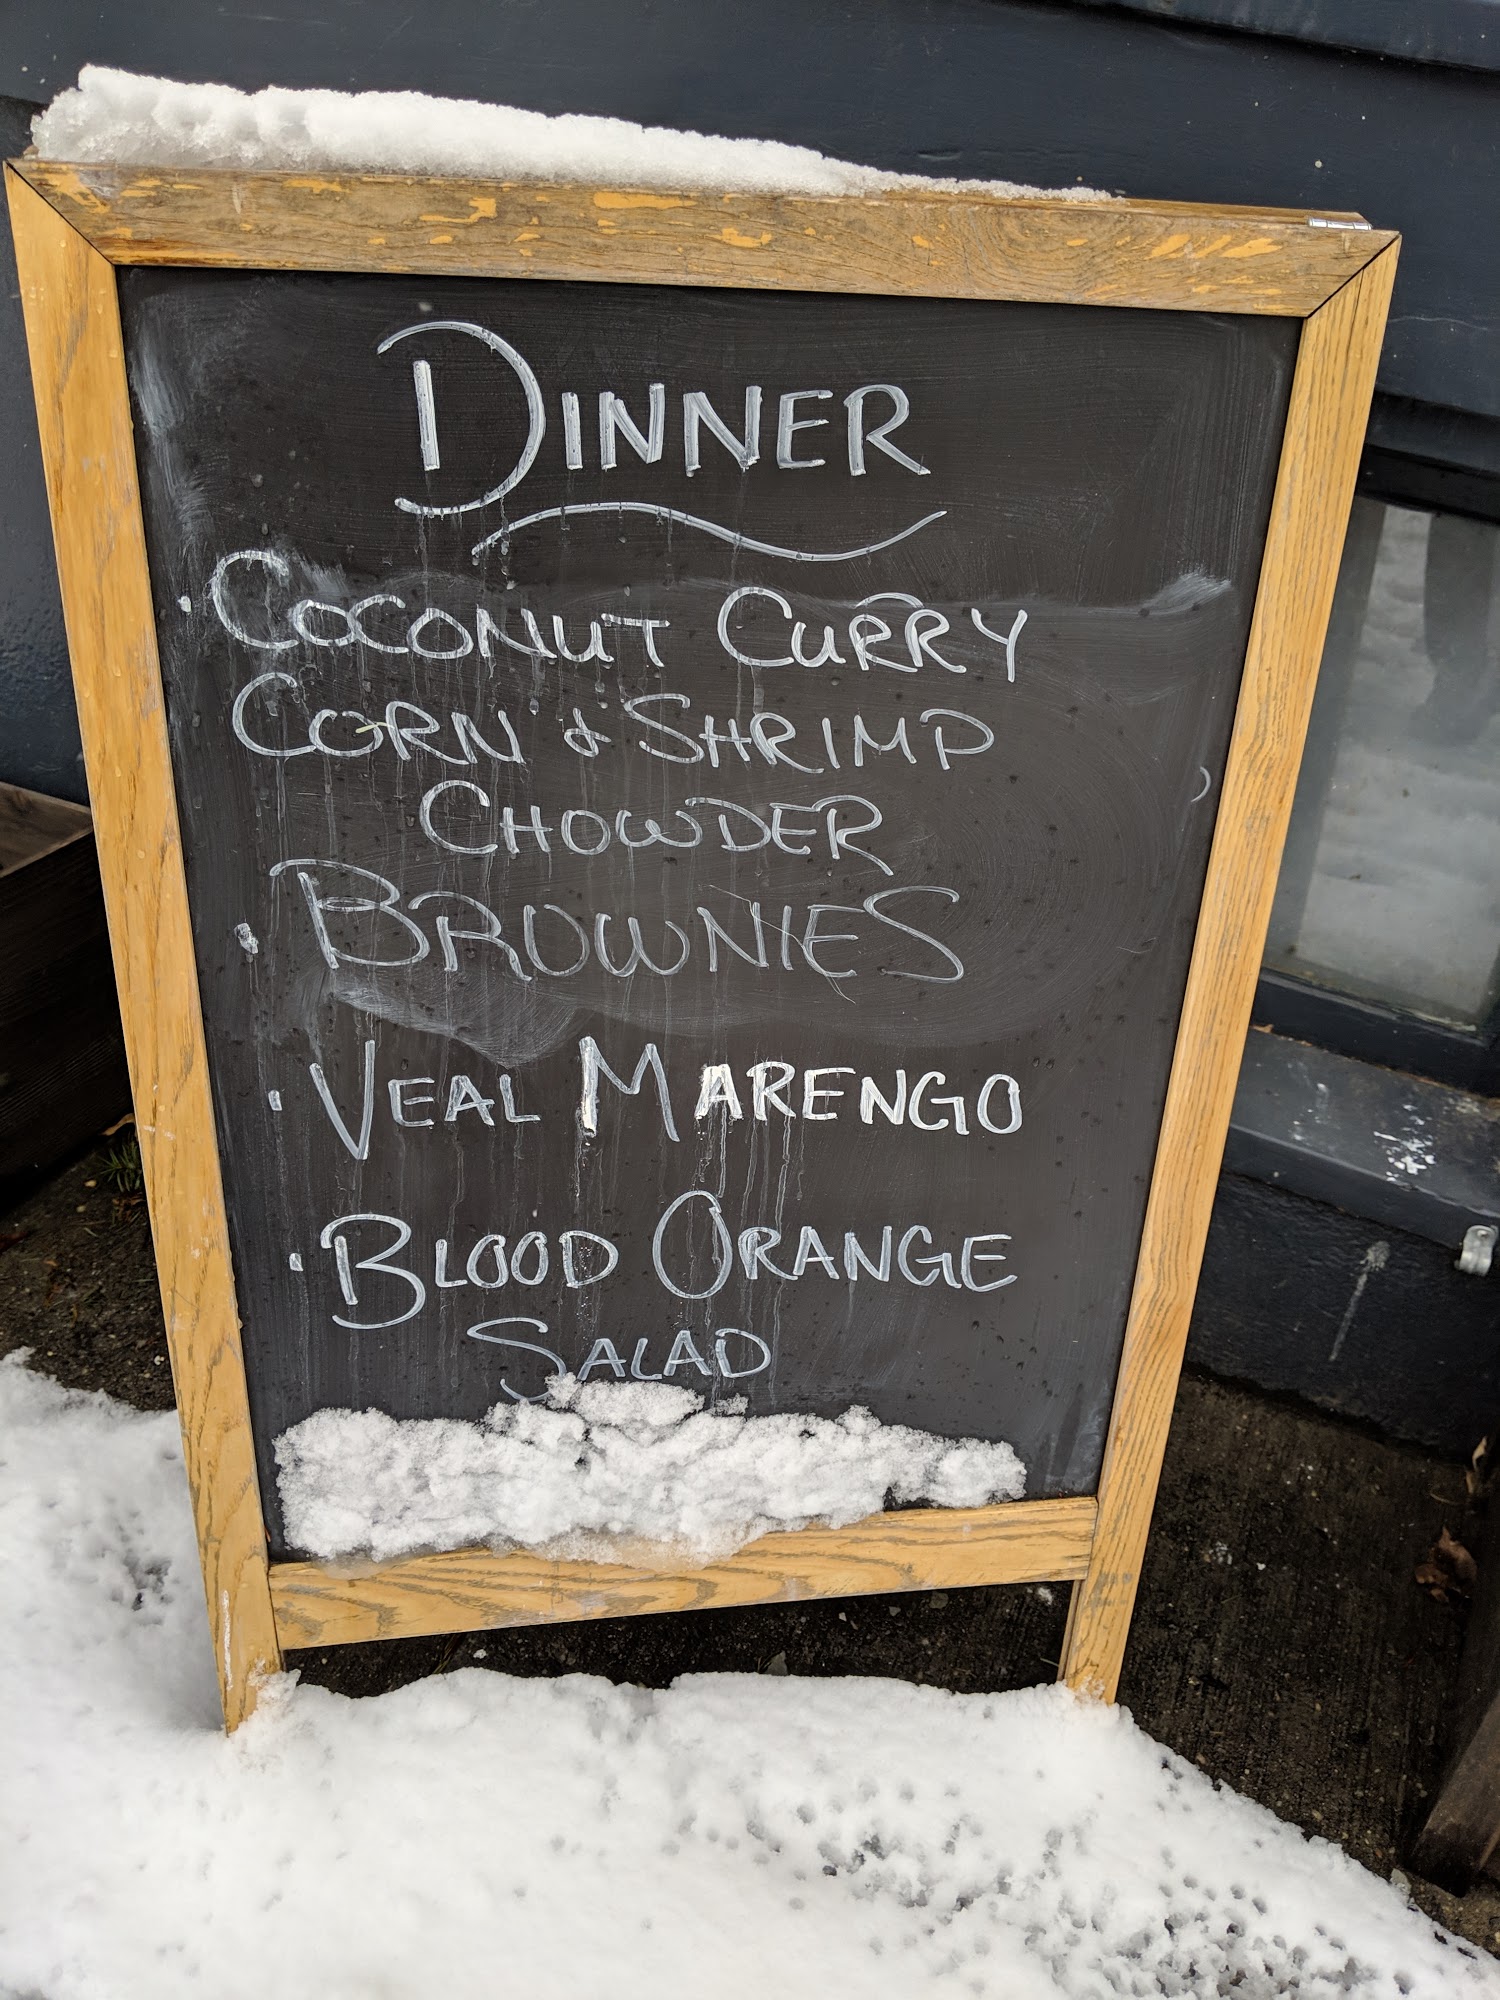 DINNER
· COCONUT CURRY
CORN & SHRIMP
CHOWDER
· BROWNIES
· VEAL MARENGO
· BLOOD ORANGE
SALAD